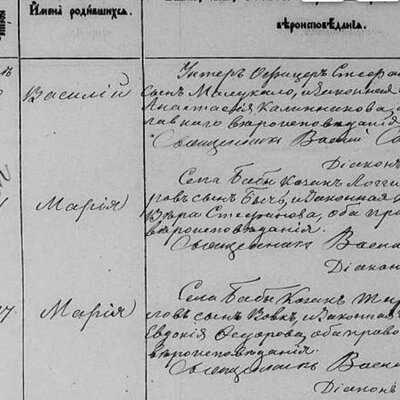 Имена родившихся.
вѣроисповѣданія.
Унтеръ Офицеръ Стефан
Василій
сынъ Милукало, и законная
Анастасія Калинникова,
лавнаго вѣроисповѣданія
Священникъ Васил
Діаконъ
Села Бабы Козакъ Логги
Марія
ровъ сынъ Бычь, и законная
Вѣра Стефанова, оба пра
вѣроисповѣданія.
Священникъ Васи
Діакон
Села Бабы Козакъ
Марія
ловъ сынъ Вовкъ, и законная
Евдокія Федорова, оба право
вѣроисповѣданія.
Священникъ Васи
Діаконъ